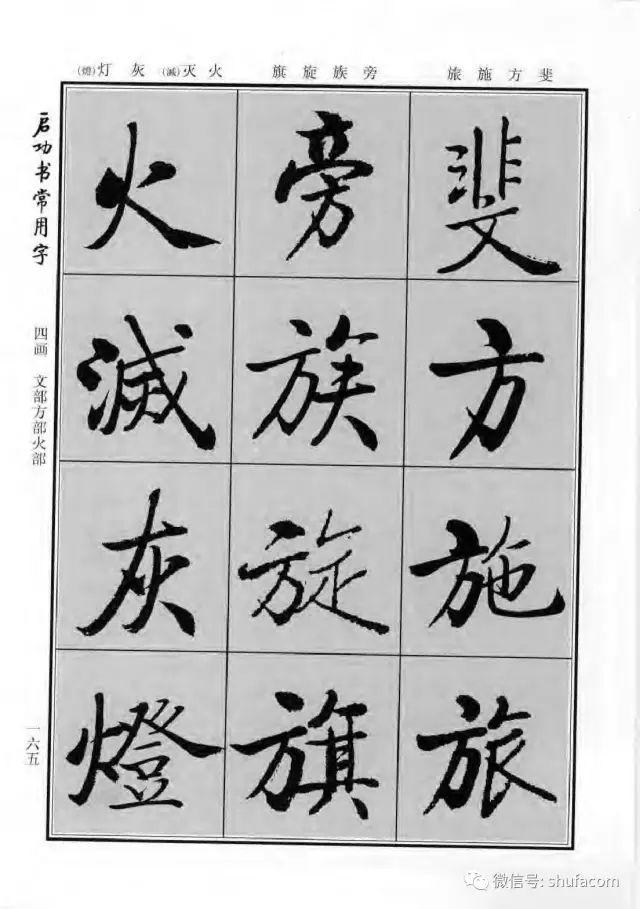 斐方施旅
旁族旋旗
火灭(滅)灰灯(燈)
斐
方
施
旅
旁
族
旋
旗
火
滅
灰
燈
启功书常用字
四画 文部方部火部
一六五
微信号: shufacom